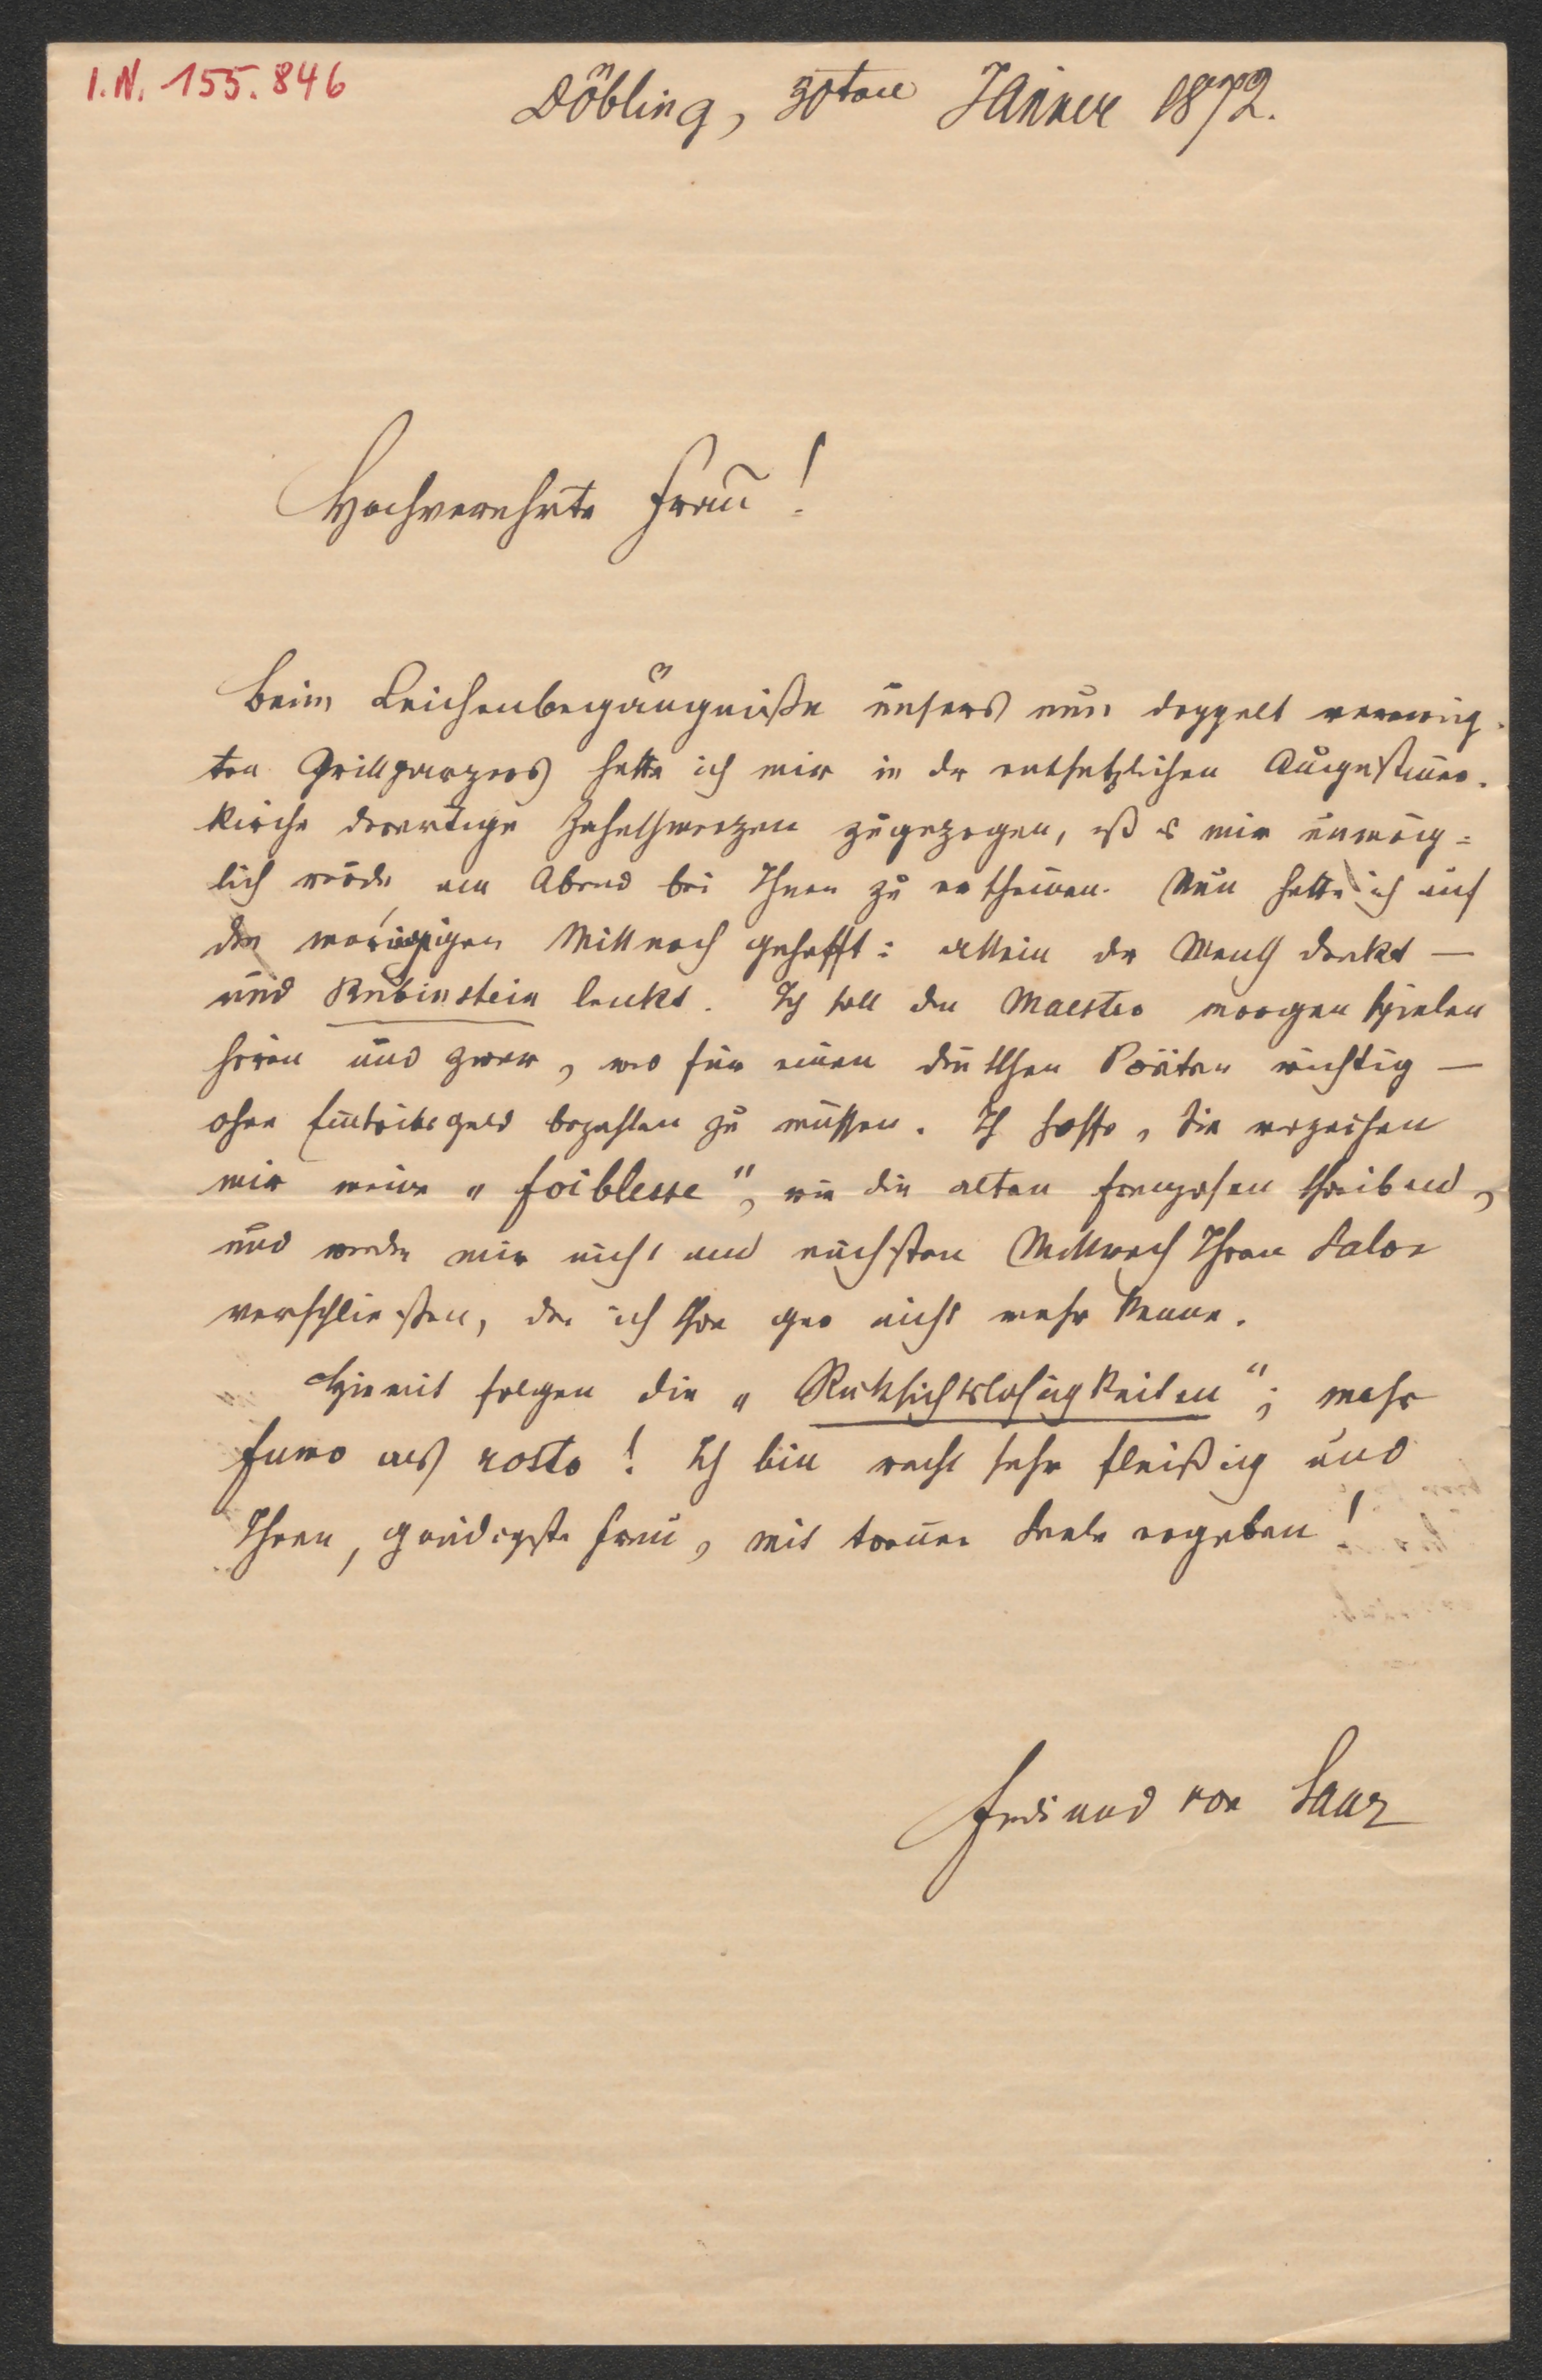 I.N. 155.846
Döbling, 30ten Jänner 1872.
Hochverehrte Frau!
Beim Leichenbegängniße unsers nun doppelt verewig-
ten Grillparzers hatte ich mir in der entsetzlichen Augustiner-
kirche derartige Zahnschmerzen zugezogen, daß es mir unmög=
lich wurde, am Abend bei Ihnen zu erscheinen. Nun hatte ich auf
den morgigen Mittwoch gehofft: allein der Mensch denkt —
und Rubinstein lenkt. Ich soll den Maestro morgen spielen
hören und zwar, was für einen deutschen Poëten wichtig —
ohne Eintrittsgeld bezahlen zu müssen. Ich hoffe, Sie verzeihen
mir meine „foiblesse", wie die alten Franzosen schreiben,
und werden mir nicht am nächsten Mittwoch Ihren Salon
verschließen, da ich schon gar nicht mehr kenne.
Hiemit folgen die „Rücksichtslosigkeiten"; mehr
fumo als rosto! Ich bin recht sehr fleißig und
Ihnen, gnädigste Frau, mit treuer Seele ergeben!
Ferdinand von Saar